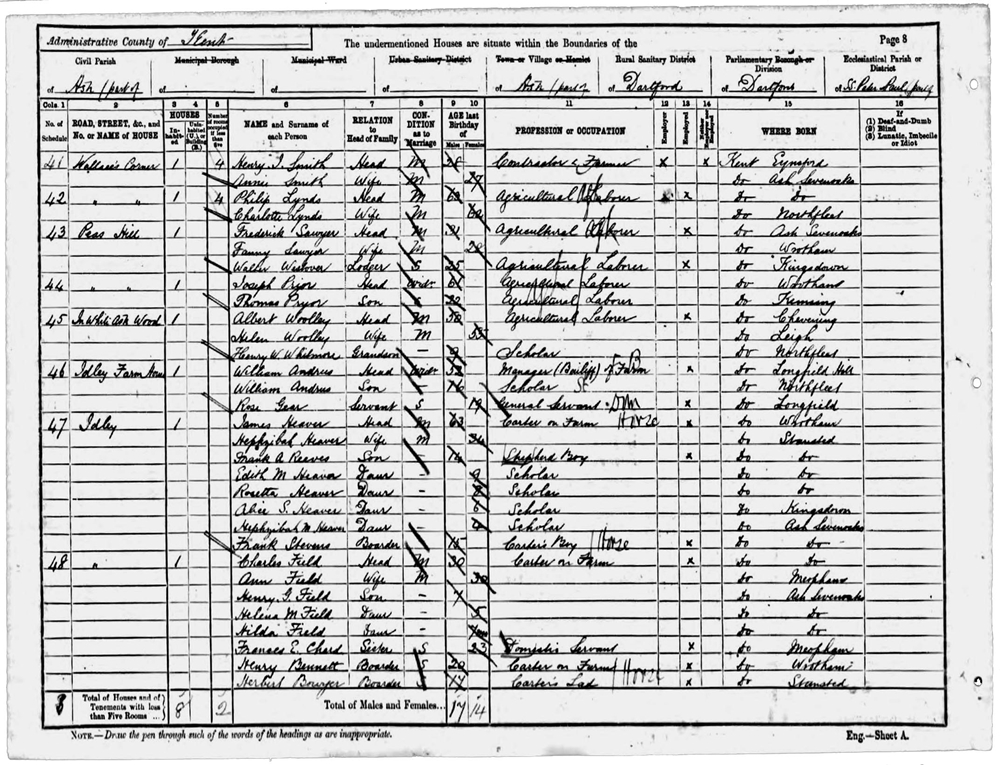 Administrative County of Kent
The undermentioned Houses are situate within the Boundaries of the
Page 8
Civil Parish
Municipal Borough
Municipal Ward
Urban Sanitary District
Town or Village or Hamlet
Rural Sanitary District
Parliamentary Borough or Division
Ecclesiastical Parish or District
of Ash (part of
of
of
of
of Ash (part of
of Dartford
of Dartford
of St Peter & Paul (part of
Cols. 1 2 3 4 5 6 7 8 9 10 11 12 13 14 15 16
No. of Schedule
ROAD, STREET, &c., and No. or NAME of HOUSE
HOUSES
Inhabited
Uninhabited (U.), or Building (B.)
Number of rooms occupied if less than five
NAME and Surname of each Person
RELATION to Head of Family
CONDITION as to Marriage
AGE last Birthday of
Males Females
PROFESSION or OCCUPATION
Employer
Employed
Neither Employer nor Employed
WHERE BORN
If (1) Deaf-and-Dumb (2) Blind (3) Lunatic, Imbecile or Idiot
41 Wallace's Corner 1 4 Henry T. Smith Head M 28 Contractor & Farmer x x Kent Eynsford
Annie Smith Wife M 27 Do Ash Sevenoaks
42 " " 1 4 Philip Lynds Head M 63 Agricultural Laborer x Do Do
Charlotte Lynds Wife M Do Northfleet
43 Peas Hill 1 Frederick Sawyer Head M 31 Agricultural Laborer x Do Ash Sevenoaks
Fanny Sawyer Wife M 28 Do Wrotham
Walter Wistover Lodger S 25 Agricultural Laborer x Do Kingsdown
44 " " 1 Joseph Pryor Head Widr 61 Agricultural Laborer Do Wrotham
Thomas Pryor Son S 22 Agricultural Laborer Do Kemsing
45 In White Ash Wood 1 Albert Woolley Head M 50 Agricultural Laborer x Do Chevening
Helen Woolley Wife M 55 Do Leigh
Henry W Whitmore Grandson – 9 Scholar Do Northfleet
46 Idley Farm House 1 William Andrus Head Widr 52 Manager (Bailiff) of Farm x Do Longfield Hill
William Andrus Son – 16 Scholar Do Northfleet
Rose Gear Servant S 19 General Servant Dom x Do Longfield
47 Idley 1 James Heaver Head M 63 Carter on Farm Horse x Do Wrotham
Hephzibah Heaver Wife M 34 Do Stansted
Frank A Reaves Son – 14 Shepherd Boy x Do Do
Edith M Heaver Daur – 9 Scholar Do Do
Rosetta Heaver Daur – Scholar Do Do
Alice S. Heaver Daur – 6 Scholar Do Kingsdown
Hephzibah M Heaver Daur – 4 Scholar Do Ash Sevenoaks
Frank Stevens Boarder – 15 Carter's Boy Horse x Do Do
48 " 1 Charles Field Head M 30 Carter on Farm x Do Do
Ann Field Wife M 30 Do Meopham
Henry G. Field Son – 7 Do Ash Sevenoaks
Helena M Field Daur – 5 Do Do
Hilda Field Daur – Do Do
Frances E. Chard Sister S 23 Domestic Servant x Do Meopham
Henry Bennett Boarder S 20 Carter on Farm Horse x Do Wrotham
Herbert Bowyer Boarder S 17 Carter's Lad x Do Stansted
8 Total of Houses and of Tenements with less than Five Rooms ... 8 2 Total of Males and Females... 17 14
NOTE.—Draw the pen through such of the words of the headings as are inappropriate.
Eng.—Sheet A.